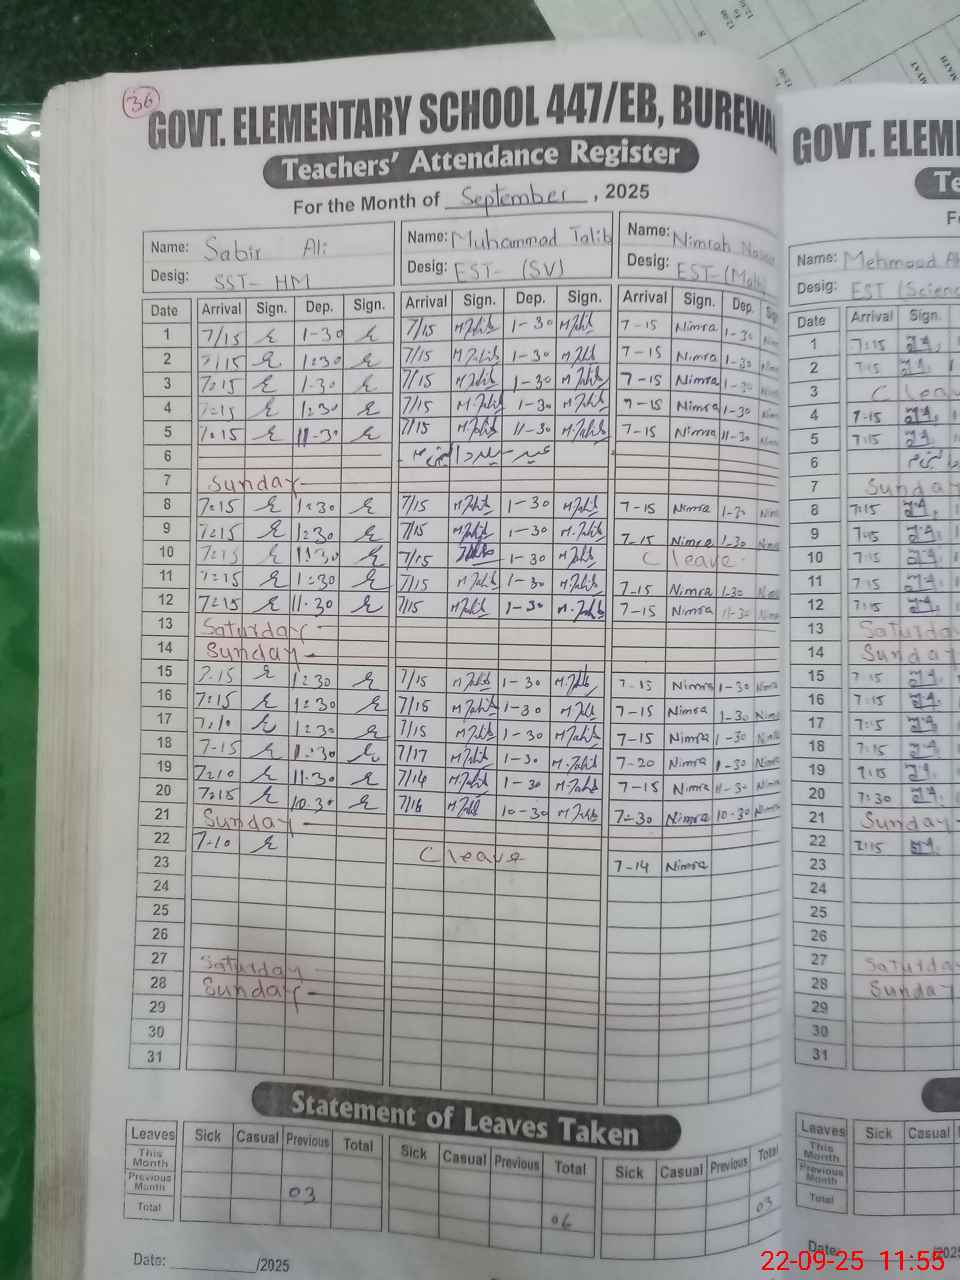 36
GOVT. ELEMENTARY SCHOOL 447/EB, BUREWA
Teachers' Attendance Register
For the Month of September, 2025
Name: Sabir Ali Name: Muhammad Talib Name: Nimrah
Desig: SST- HM Desig: EST- (SV) Desig: EST-(Math)
Date Arrival Sign. Dep. Sign. Arrival Sign. Dep. Sign. Arrival Sign. Dep.
1 7/15 1-30 7/15 M.Talib 1-30 M.Talib 7-15 Nimra 1-30
2 7/15 1:30 7/15 M.Talib 1-30 M.Talib 7-15 Nimra 1-30
3 7:15 1-30 7/15 M.Talib 1-30 M.Talib 7-15 Nimra 1-30
4 7:15 1:30 7/15 M.Talib 1-30 M.Talib 7-15 Nimra 1-30
5 7:15 11-30 7/15 M.Talib 11-30 M.Talib 7-15 Nimra 11-30
6 عید
7 Sunday
8 7:15 1:30 7/15 M.Talib 1-30 M.Talib 7-15 Nimra 1-30
9 7:15 1:30 7/15 M.Talib 1-30 M.Talib 7-15 Nimra 1-30
10 7:15 1:30 7/15 1-30 M.Talib C leave
11 7:15 1:30 7/15 M.Talib 1-30 M.Talib 7-15 Nimra 1-30
12 7:15 11.30 7/15 M.Talib 1-30 M.Talib 7-15 Nimra 11-30
13 Saturday
14 Sunday
15 7:15 1:30 7/15 M.Talib 1-30 M.Talib 7-15 Nimra 1-30
16 7:15 1:30 7/15 M.Talib 1-30 M.Talib 7-15 Nimra 1-30
17 7:10 1:30 7/15 M.Talib 1-30 M.Talib 7-15 Nimra 1-30
18 7-15 1:30 7/17 M.Talib 1-30 M.Talib 7-20 Nimra 1-30
19 7:10 11:30 7/14 M.Talib 1-30 M.Talib 7-15 Nimra 11-30
20 7:15 10.30 7/16 M.Talib 10-30 M.Talib 7-30 Nimra 10-30
21 Sunday
22 7-10 C leave 7-14 Nimra
23
24
25
26
27 Saturday
28 Sunday
29
30
31
Statement of Leaves Taken
Leaves Sick Casual Previous Total Sick Casual Previous Total Sick Casual Previous Total
This Month
Previous Month 03
Total 06 03
Date: /2025
GOVT. ELEM
Te
Name: Mehmood
Desig: EST (Scienc
Date Arrival Sign.
1 7:15
2 7:15
3 C leav
4 7-15
5 7:15
6
7 Sunday
8 7:15
9 7:15
10 7:15
11 7:15
12 7:15
13 Saturda
14 Sunday
15 7:15
16 7:15
17 7:15
18 7:15
19 7:15
20 7:30
21 Sunday
22 7:15
23
24
25
26
27 Saturda
28 Sunday
29
30
31
Leaves Sick Casual
This Month
Previous Month
Total
Date:
22-09-25 11:55